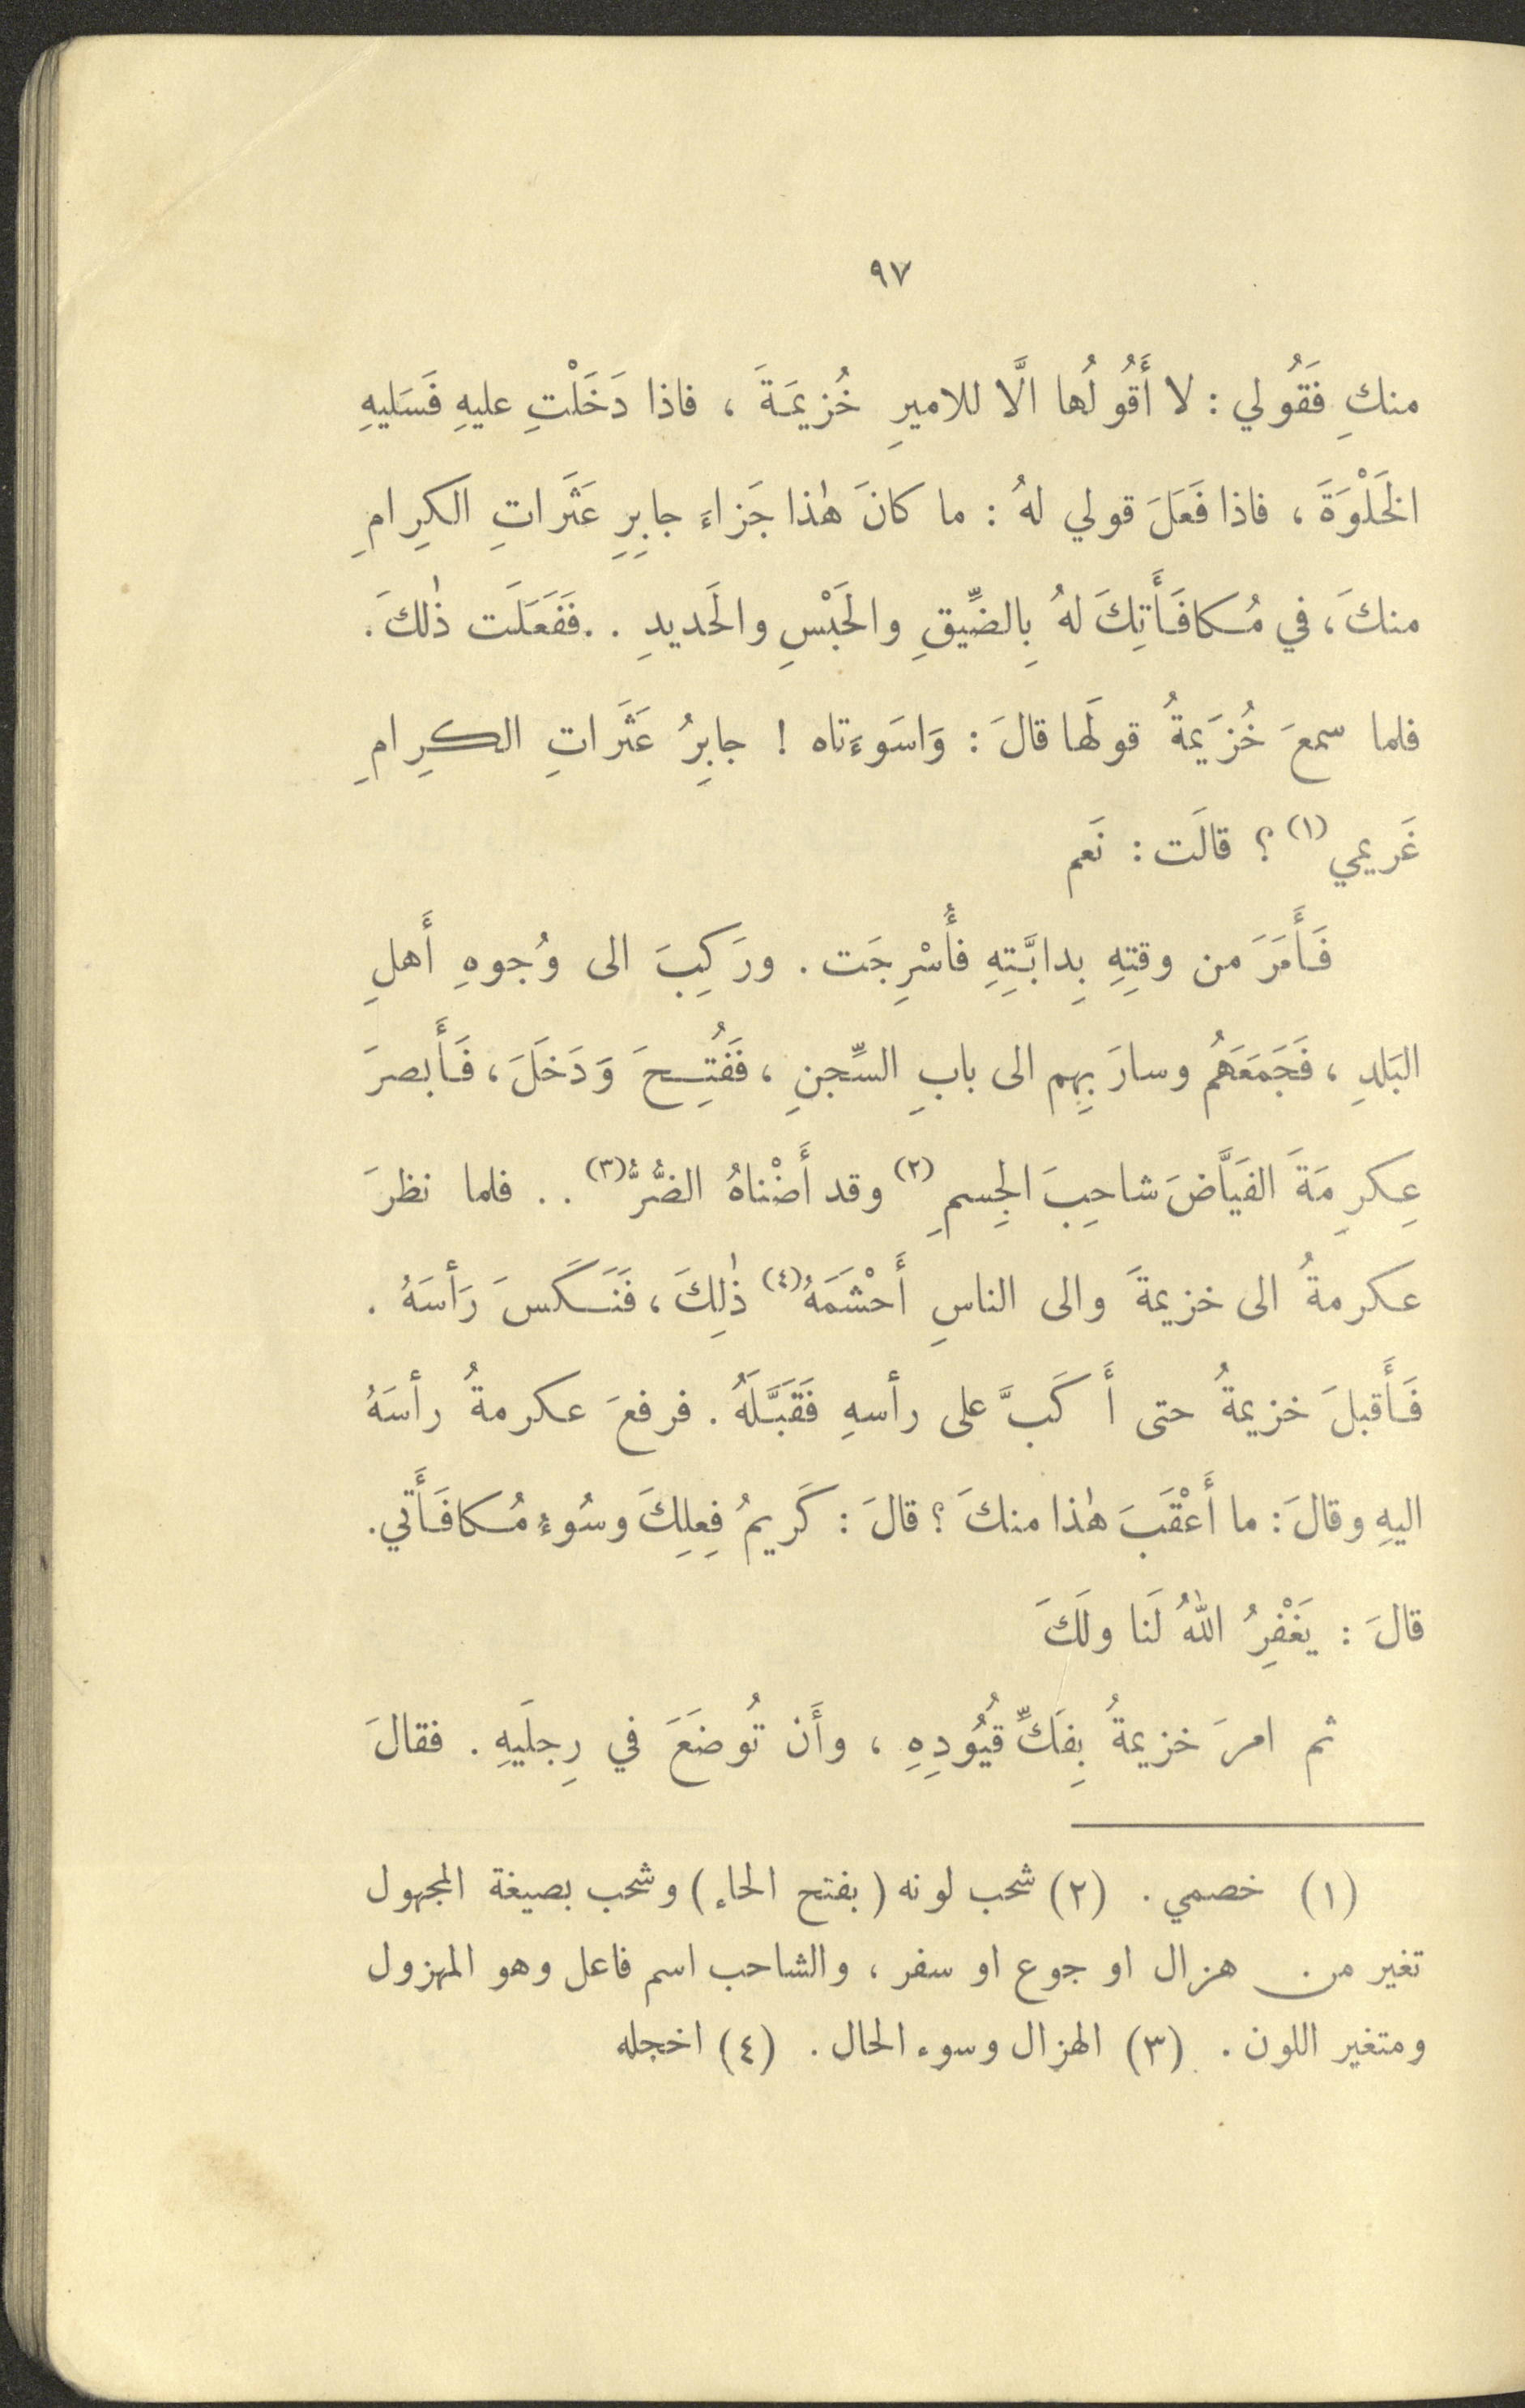 ٩٧
منكِ فَقُولي : لا أَقُولُها الَّا للاميرِ خُزيمَةَ ، فاذا دَخَلْتِ عليهِ فَسَليهِ
الخَلْوَةَ ، فاذا فَعَلَ قولي لهُ : ما كانَ هٰذا جَزاءَ جابِرِ عَثَراتِ الكِرامِ
منكَ ، في مُكافَأَتِكَ لهُ بِالضِّيقِ والحَبْسِ والحَديدِ . . فَفَعَلَت ذٰلكَ .
فلما سمعَ خُزَيمةُ قولَها قالَ : وَاسَوءَتاه ! جابِرُ عَثَراتِ الكِرامِ
غَريمي (١) ؟ قالَت : نَعم
فَأَمَرَ من وقتِهِ بِدابَّتِهِ فأُسْرِجَت . ورَكِبَ الى وُجوهِ أَهلِ
البَلدِ ، فَجَمَعَهُم وسارَ بِهِم الى بابِ السِّجنِ ، فَفُتِحَ وَدَخَلَ ، فَأَبصرَ
عِكرِمَةَ الفَيَّاضَ شاحِبَ الجِسمِ (٢) وقد أَضْناهُ الضُّرُّ (٣) . . فلما نظرَ
عكرمةُ الى خزيمةَ والى الناسِ أَحْشَمَهُ (٤) ذٰلِكَ ، فَنَكَسَ رَأسَهُ .
فَأَقبلَ خزيمةُ حتى أَكَبَّ على رأسهِ فَقَبَّلَهُ . فرفعَ عكرمةُ رأسَهُ
اليهِ وقالَ : ما أَعْقَبَ هٰذا منكَ ؟ قالَ : كَريمُ فِعلِكَ وسُوءُ مُكافَأَتي .
قالَ : يَغْفِرُ اللهُ لَنا ولَكَ
ثم امرَ خزيمةُ بِفَكِّ قُيُودِهِ ، وأَن تُوضَعَ في رِجلَيهِ . فقالَ
(١) خصمي . (٢) شحب لونه ( بفتح الحاء ) وشحب بصيغة المجهول
تغير من هزال او جوع او سفر ، والشاحب اسم فاعل وهو المهزول
ومتغير اللون . (٣) الهزال وسوء الحال . (٤) اخجله